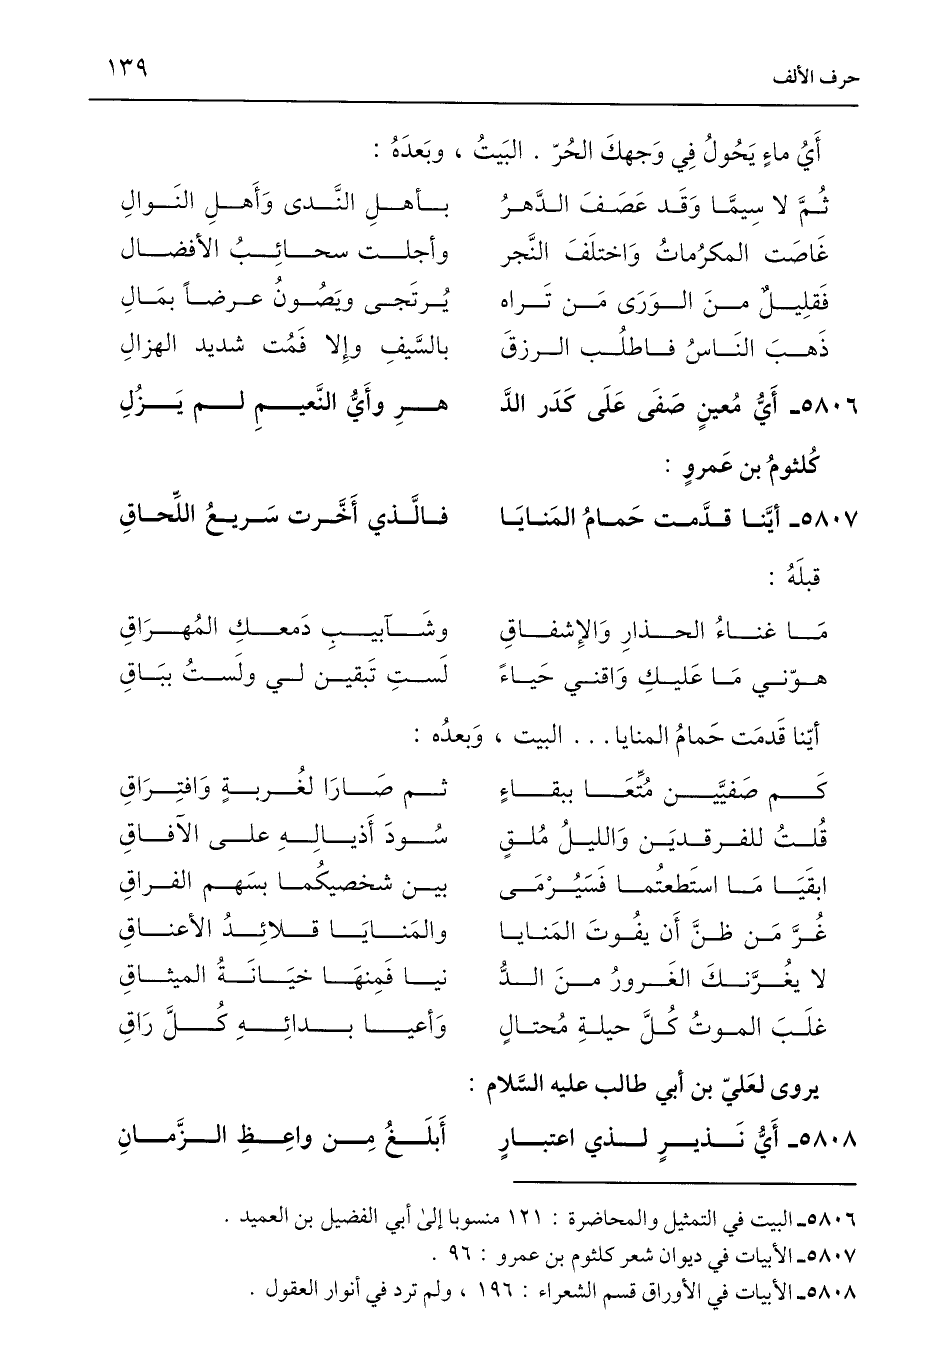 حرف الألف ١٣٩
أَيُّ ماءٍ يَحُولُ فِي وَجهِكَ الحُرِّ . البَيتُ ، وبَعدَهُ :
ثُمَّ لا سِيمَّا وَقَد عَصَفَ الدَّهرُ بِأهلِ النَّدى وَأَهلِ النَّوالِ
غَاضَت المكرُمَاتُ وَاختلَفَ النَّجر وأجلت سحائبُ الأفضالِ
فَقليلٌ مِنَ الوَرَى مَن تَراه يُرتَجى ويَصُونُ عرضاً بمَالِ
ذَهبَ النَّاسُ فاطلُب الرزقَ بالسَّيفِ وإلا فَمُت شديد الهزالِ
٥٨٠٦ـ أَيُّ مُعينٍ صَفَى عَلَى كَدَر الدَّ هرِ وأَيُّ النَّعِيمِ لم يَزُلِ
كُلثومُ بن عَمروٍ :
٥٨٠٧ـ أيَّنا قدَّمت حَمامُ المَنايَا فالَّذي أَخَّرت سَريعُ اللّحاقِ
قبلَهُ :
مَا غناءُ الحذارِ وَالإِشفاقِ وشَآبيبِ دَمعكِ المُهرَاقِ
هوّني مَا عَليكِ وَاقني حَياءً لَستِ تَبقينَ لي ولَستُ ببَاقِ
أيّنا قَدمَت حَمامُ المنايا... البيت ، وَبَعدُه :
كَم صَفيَّينِ مُتِّعَا ببقاءٍ ثم صَارَا لغُربةٍ وَافتِراقِ
قُلتُ للفَرقديَنِ وَالليلُ مُلقٍ سُودَ أَذيالِهِ على الآفاقِ
ابقَيَا مَا استطعتُما فسَيُرْمَى بين شَخصيكُما بسَهم الفراقِ
غُرَّ مَن ظنَّ أَن يفُوتَ المَنايا والمَنايَا قلائدُ الأعناقِ
لا يغُرَّنكَ الغَرورُ منَ الدُّ نيا فمِنهَا خيَانةُ الميثاقِ
غلَبَ الموتُ كُلَّ حيلةِ مُحتالٍ وَأعيَا بدائِهِ كُلَّ رَاقِ
يروى لعَليّ بن أبي طالب عليه السَّلام :
٥٨٠٨ـ أَيُّ نَذيرٍ لذي اعتبارٍ أَبلَغُ مِن واعِظِ الزَّمانِ
٥٨٠٦ـ البيت في التمثيل والمحاضرة : ١٢١ منسوبا إلى أبي الفضيل بن العميد .
٥٨٠٧ـ الأبيات في ديوان شعر كلثوم بن عمرو : ٩٦ .
٥٨٠٨ـ الأبيات في الأوراق قسم الشعراء : ١٩٦ ، ولم ترد في أنوار العقول .